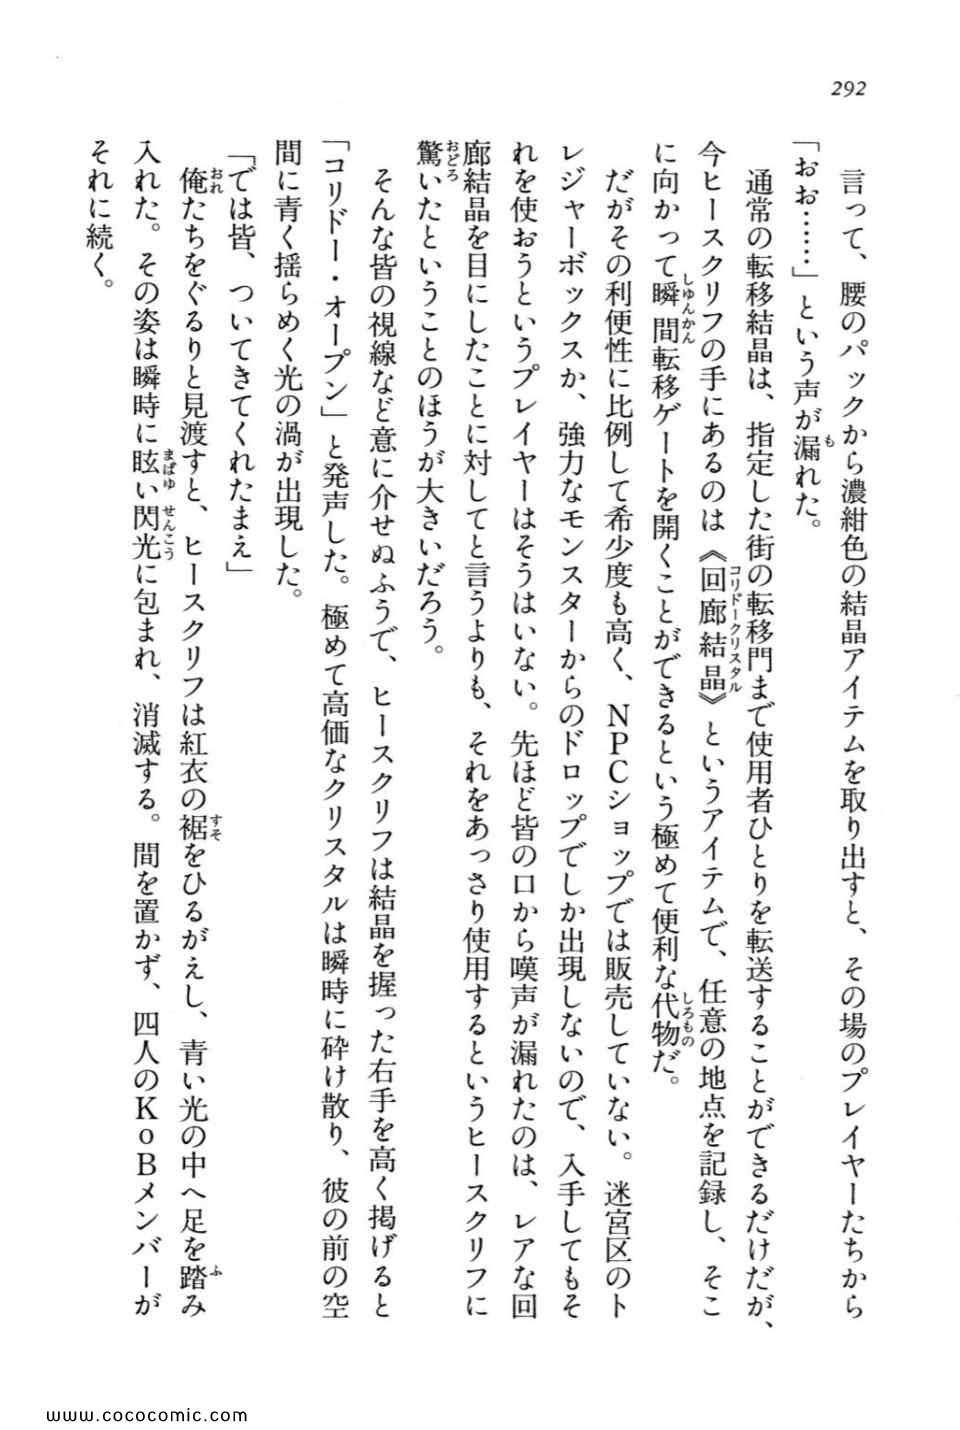 292
言って、腰のパックから濃紺色の結晶アイテムを取り出すと、その場のプレイヤーたちから
「おお……」という声が漏れた。
通常の転移結晶は、指定した街の転移門まで使用者ひとりを転送することができるだけだが、
今ヒースクリフの手にあるのは《回廊結晶》というアイテムで、任意の地点を記録し、そこ
に向かって瞬間転移ゲートを開くことができるという極めて便利な代物だ。
だがその利便性に比例して希少度も高く、NPCショップでは販売していない。迷宮区のト
レジャーボックスか、強力なモンスターからのドロップでしか出現しないので、入手してもそ
れを使おうというプレイヤーはそうはいない。先ほど皆の口から嘆声が漏れたのは、レアな回
廊結晶を目にしたことに対してと言うよりも、それをあっさり使用するというヒースクリフに
驚いたということのほうが大きいだろう。
そんな皆の視線など意に介せぬふうで、ヒースクリフは結晶を握った右手を高く掲げると
「コリドー・オープン」と発声した。極めて高価なクリスタルは瞬時に砕け散り、彼の前の空
間に青く揺らめく光の渦が出現した。
「では皆、ついてきてくれたまえ」
俺たちをぐるりと見渡すと、ヒースクリフは紅衣の裾をひるがえし、青い光の中へ足を踏み
入れた。その姿は瞬時に眩い閃光に包まれ、消滅する。間を置かず、四人のKoBメンバーが
それに続く。
www.cococomic.com